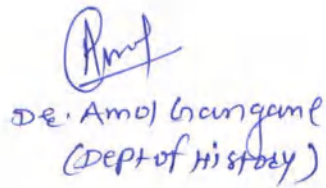 Amol
Dr. Amol Gangane
(Dept of History)